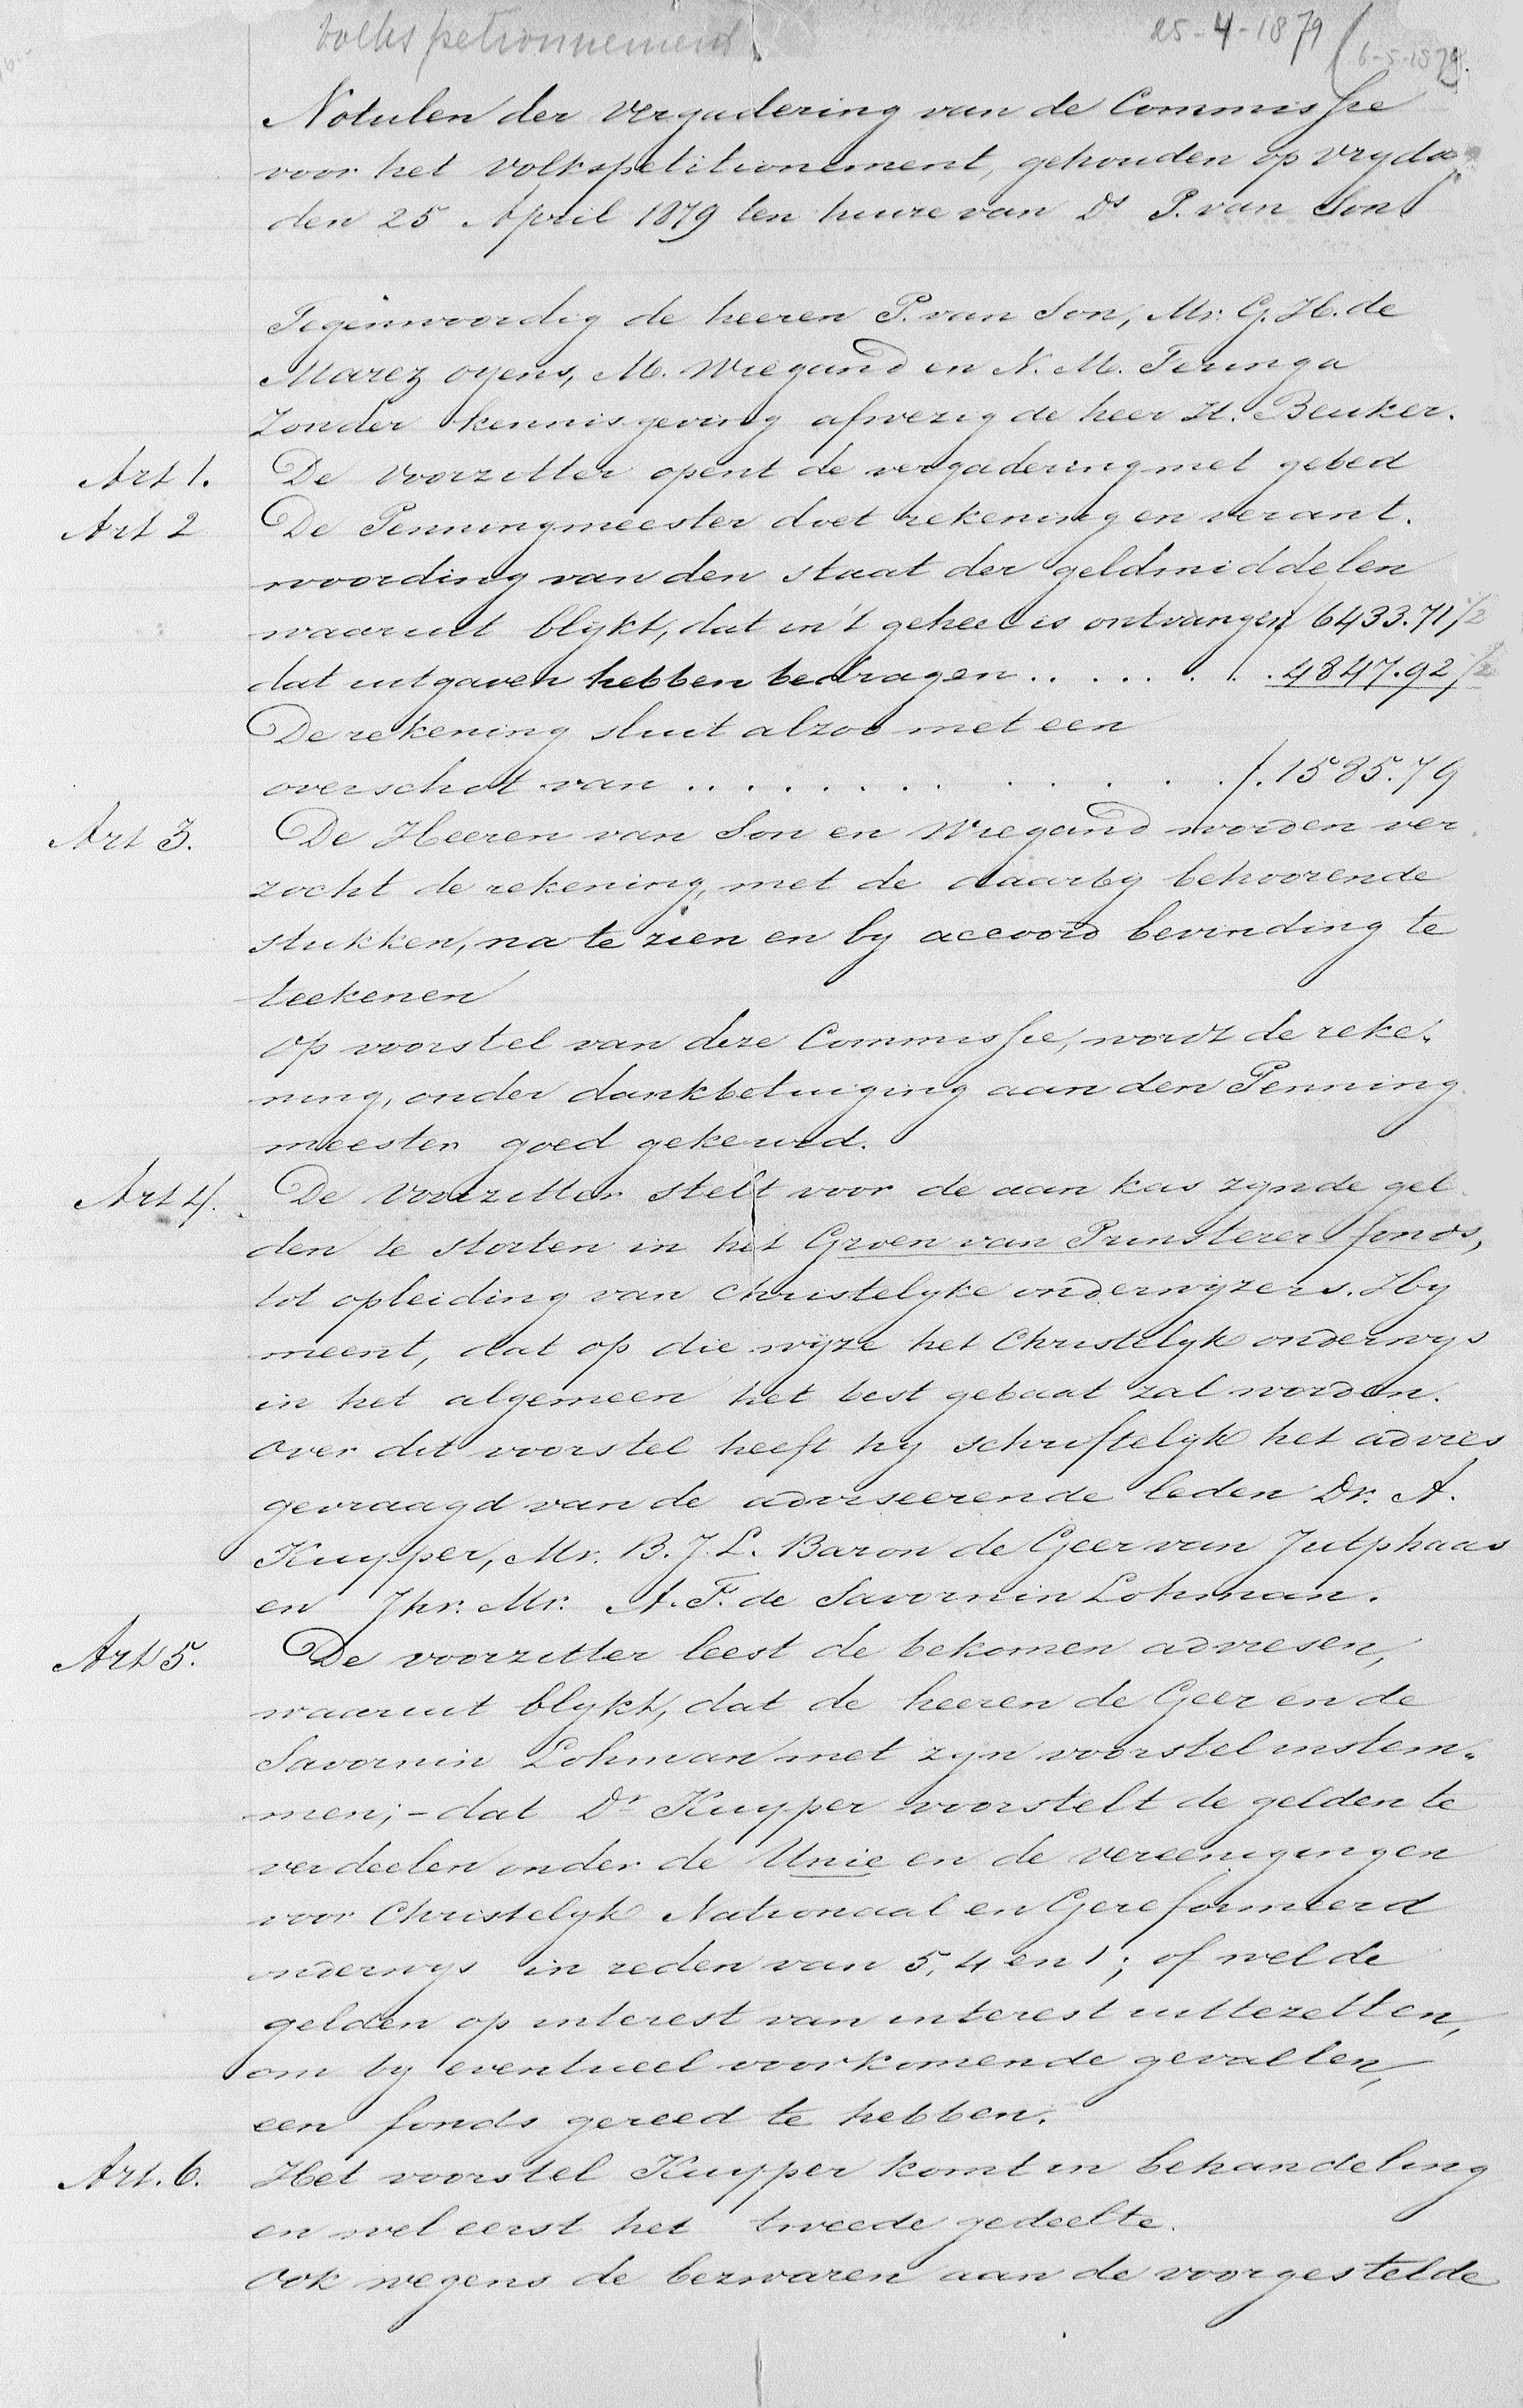 Volkspetionnement 25-4-1879 (6-5-1879.
Notulen der vergadering van de Commissie
voor het volkspetitionement, gehouden op vrydag
den 25 April 1879 ten huize van Ds P. van Son
Tegenwoordig de heeren P. van Son, Mr. G. H. de
Marez Oyens, M. Wiegand en N. M. Feringa
Zonder kennisgeving afwezig de heer H. Beuker.
Art 1. De voorzitter opent de vergadering met gebed
Art 2 De Penningmeester doet rekening en verant.
woording van den staat der geldmiddelen
waaruit blykt, dat in't geheel is ontvangen f 6433.71 1/2
dat uitgaven hebben bedragen . . . . . . . 4847.92 1/2
De rekening sluit alzoo met een
overschot van . . . . . . . . . . . . f. 1585.79
Art 3. De Heeren van Son en Wiegand worden ver.
zocht de rekening, met de daarby behoorende
stukken, na te zien en by accoord bevinding te
teekenen
op voorstel van deze Commissie, wordt de reke.
ning, onder dankbetuiging aan den Penning
meester goed gekeurd.
Art 4. De Voorzitter stelt voor de aan kas zynde gel
den te storten in het Groen van Prinsterer fonds,
tot opleiding van Christelyke onderwyzers. Hy
meent, dat op die wyze het Christelyk onderwys
in het algemeen het best gebaat zal worden.
over dit voorstel heeft hy schriftelyk het advies
gevraagd van de adviseerende leden Dr. A.
Kuyper, Mr. B. J. L. Baron de Geer van Jutphaas
en Jhr. Mr. A. F. de Savornin Lohman.
Art 5. De voorzitter leest de bekomen adviesen,
waaruit blykt, dat de heeren de Geer en de
Savornin Lohman met zyn voorstel instem.
men; - dat Dr Kuyper voorstelt de gelden te
verdeelen onder de Unie en de vereenigingen
voor Christelyk Nationaal en Gereformeerd
onderwys in reden van 5, 4 en 1; of wel de
gelden op interest van interest uittezetten,
om by eventueel voorkomende gevallen,
een fonds gereed te hebben.
Art. 6. Het voorstel Kuyper komt in behandeling
en wel eerst het tweede gedeelte.
Ook wegens de bezwaren aan de voorgestelde